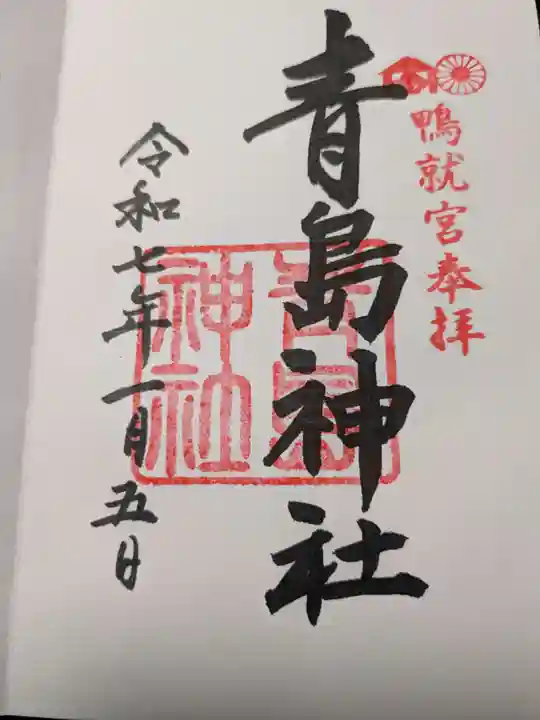 鴨就宮奉拝
青島神社
青島神社
令和七年一月五日